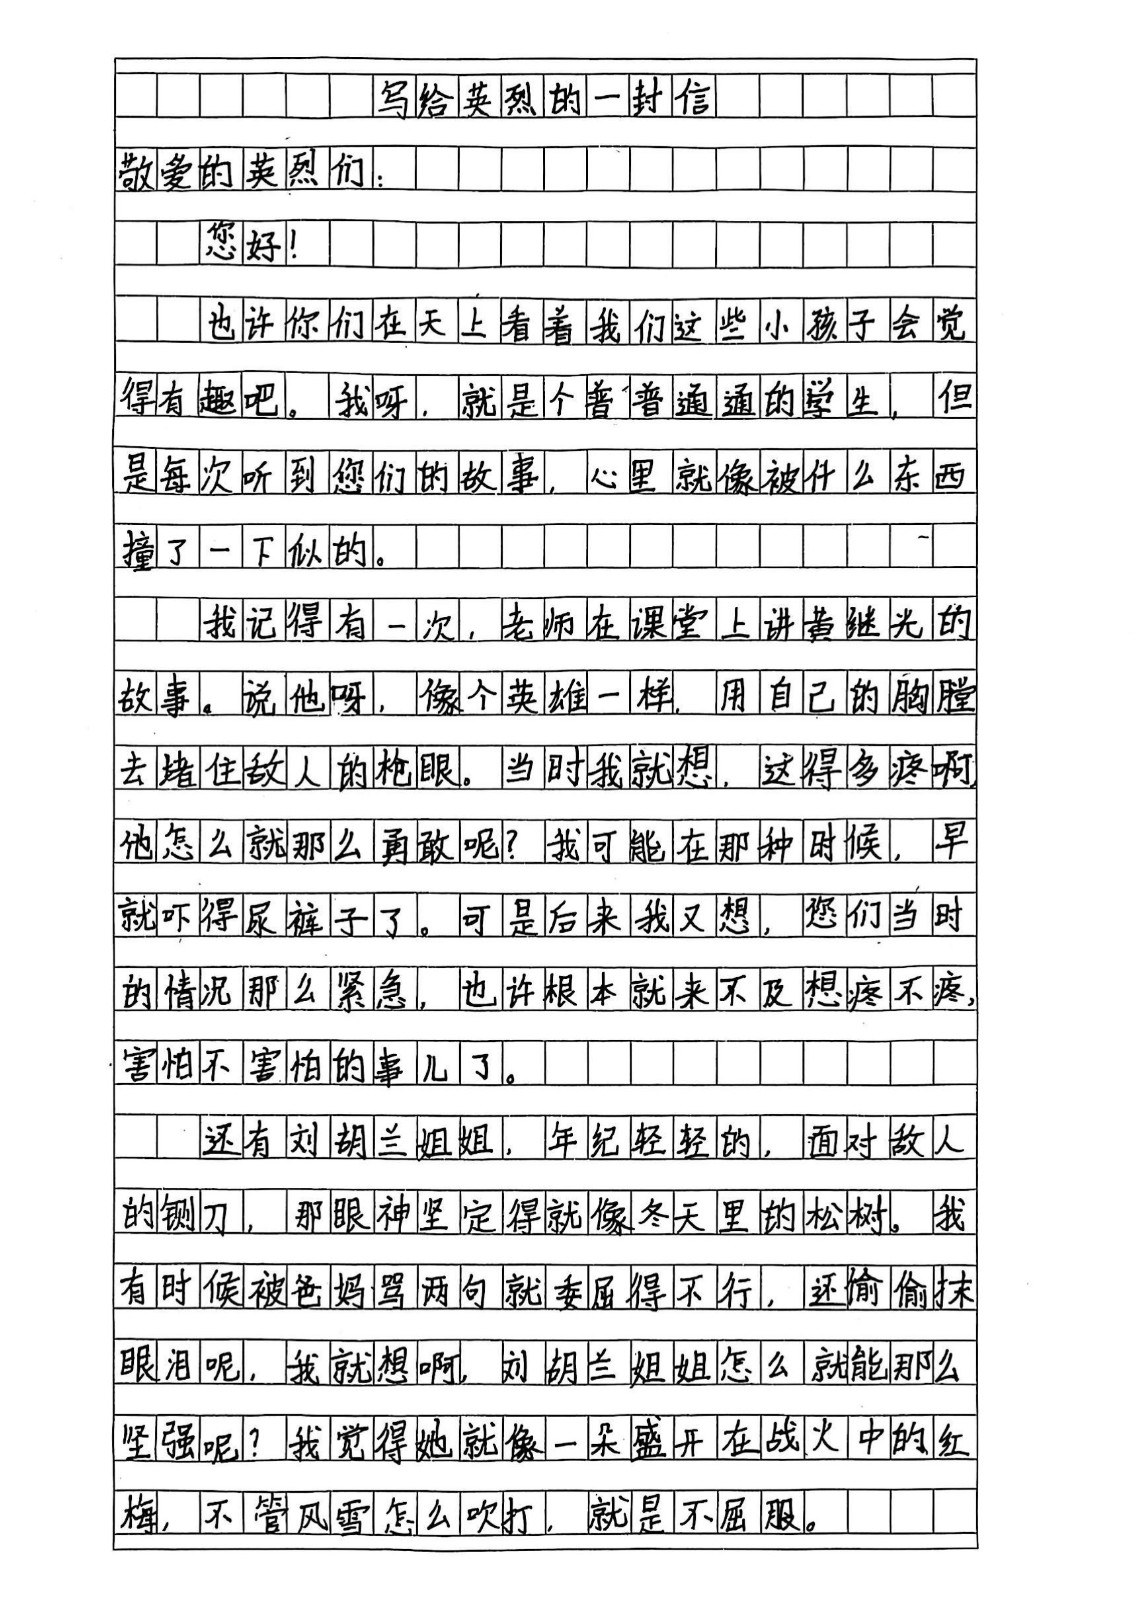 写给英烈的一封信
敬爱的英烈们：
您好！
也许你们在天上看着我们这些小孩子会觉
得有趣吧。我呀，就是个普普通通的学生，但
是每次听到您们的故事，心里就像被什么东西
撞了一下似的。
我记得有一次，老师在课堂上讲黄继光的
故事。说他呀，像个英雄一样，用自己的胸膛
去堵住敌人的枪眼。当时我就想，这得多疼啊，
他怎么就那么勇敢呢？我可能在那种时候，早
就吓得尿裤子了。可是后来我又想，您们当时
的情况那么紧急，也许根本就来不及想疼不疼，
害怕不害怕的事儿了。
还有刘胡兰姐姐，年纪轻轻的，面对敌人
的铡刀，那眼神坚定得就像冬天里的松树。我
有时候被爸妈骂两句就委屈得不行，还偷偷抹
眼泪呢，我就想啊，刘胡兰姐姐怎么就能那么
坚强呢？我觉得她就像一朵盛开在战火中的红
梅，不管风雪怎么吹打，就是不屈服。